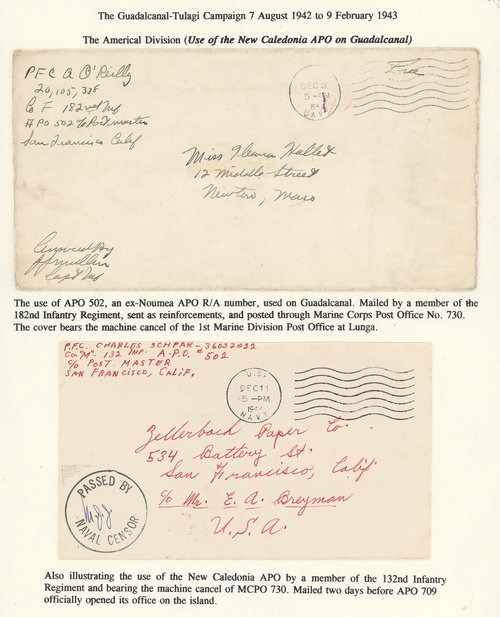 The Guadalcanal-Tulagi Campaign 7 August 1942 to 9 February 1943
The Americal Division (Use of the New Caledonia APO on Guadalcanal)
PFC A O'Reilly
20,105,338
Co F 182nd Inf
APO 502 c/o Postmaster
San Francisco Calif
DEC 3
5-PM
NAVY
Free
Miss Ileana Hallet
12 Middle Street
Newton, Mass
Censored By
Capt Inf
The use of APO 502, an ex-Noumea APO R/A number, used on Guadalcanal. Mailed by a member of the
182nd Infantry Regiment, sent as reinforcements, and posted through Marine Corps Post Office No. 730.
The cover bears the machine cancel of the 1st Marine Division Post Office at Lunga.
P.F.C. CHARLES SCHPAK-36032022
Co."M" 132 INF. A.P.O. #502
C/o POST MASTER
SAN FRANCISCO, CALIF.
U.S.
DEC 11
5-PM
1942
NAVY
Zellerbach Paper Co.
534 Battery St.
San Francisco, Calif
c/o Mr. E. A. Breyman
U.S.A.
PASSED BY
NAVAL CENSOR
Also illustrating the use of the New Caledonia APO by a member of the 132nd Infantry
Regiment and bearing the machine cancel of MCPO 730. Mailed two days before APO 709
officially opened its office on the island.